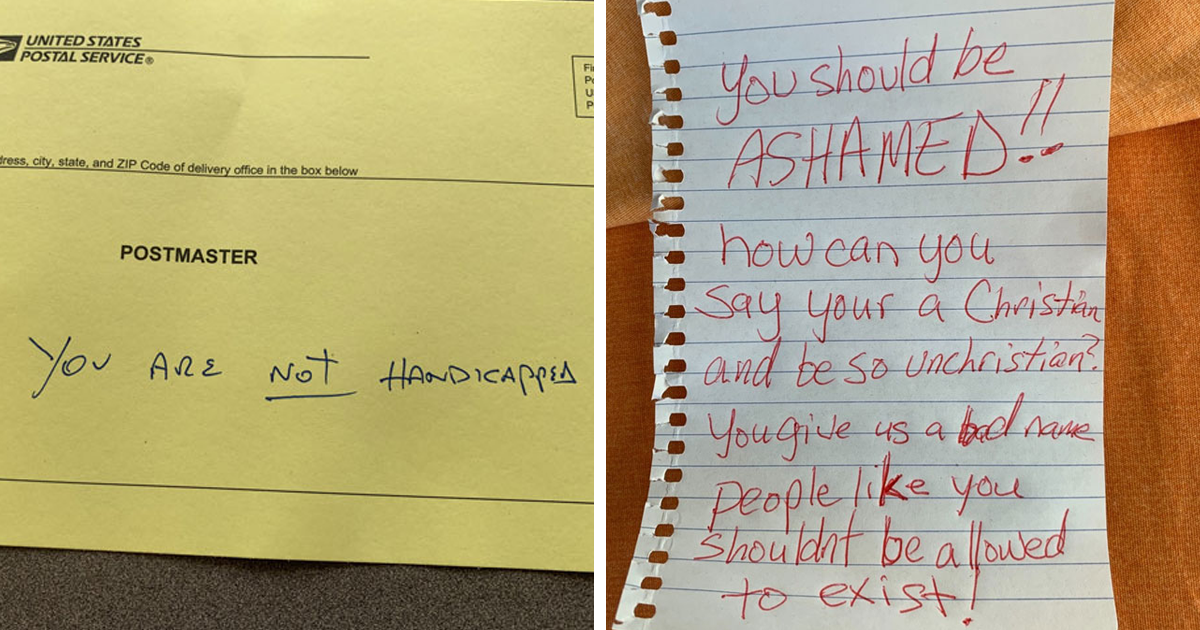 UNITED STATES
POSTAL SERVICE®
ress, city, state, and ZIP Code of delivery office in the box below
POSTMASTER
YOU ARE NOT HANDICAPPED
You should be
ASHAMED!!
how can you
say your a Christian
and be so unchristian?
You give us a bad name
people like you
shouldnt be allowed
to exist!